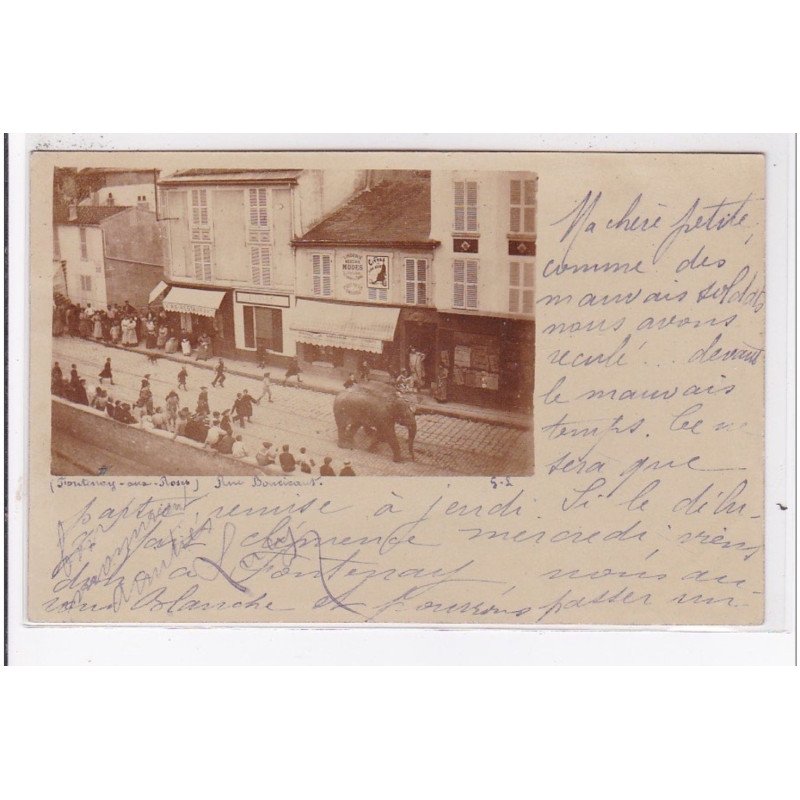 MODES
Ma chère petite,
comme des
mauvais soldats
nous avons
reculé... devant
le mauvais
temps. Ce ne
sera que
(Fontenay-aux-Roses) Rue Boucicaut. G-L
partie remise à jeudi. Si le
clémence mercredi viens
à Fontenay, nous
Blanche et pourrons passer